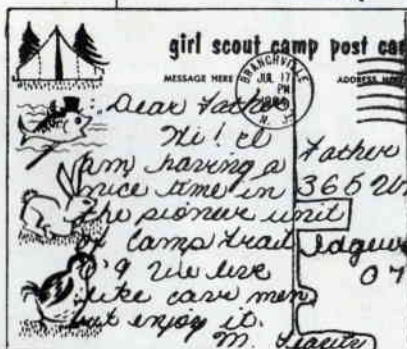 girl scout camp post car
MESSAGE HERE
ADDRESS HERE
BRANCHVILLE
JUL 17
PM
N. J.
Dear Father
Hi! I
am having a
nice time in
the pioneer unit
of Camp Trail
We live
like cave men
but enjoy it.
M.
Father
365 W
Edgew
07